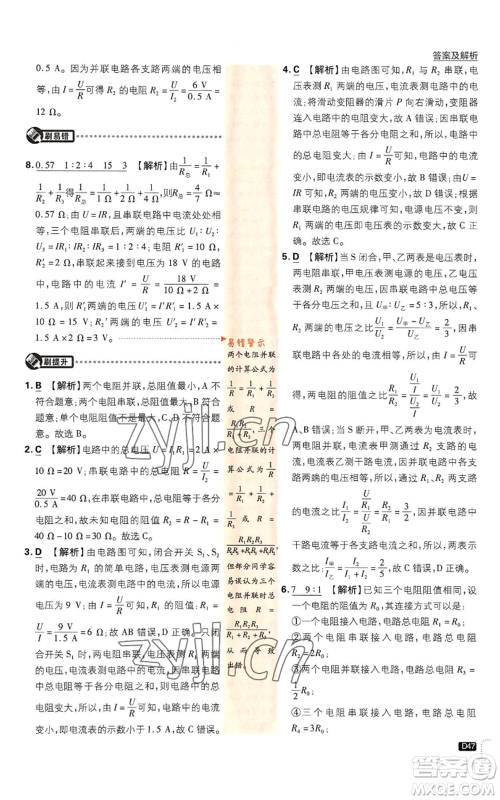 答案及解析
0.5 A。因为并联电路各支路两端的电压相
等，所以由 I = U/R 可得 R₂ 的电阻 R₂ = U/I₂ = 6 V/0.5 A =
12 Ω。
刷易错
8. 0.57 1∶2∶4 15 3 【解析】由 1/R总 = 1/R₁ +
1/R₂ + 1/R₃ 得 1/R总 = 1/1 Ω + 1/2 Ω + 1/4 Ω，则R总 = 4/7 Ω ≈
0.57 Ω；由 U = IR，且串联电路中电流处处相
等，三个电阻串联后，两端的电压之比 U₁∶U₂∶
U₃ = IR₁∶IR₂∶IR₃ = 1∶2∶4；电阻 R′₁ = 10 Ω、
R′₂ = 2 Ω，串联起来接到电压为 18 V 的电源
上，电路中的电流 I′ = U/R = 18 V/(10 Ω + 2 Ω) =
1.5 A，则 R′₁ 两端的电压 U′₁ = I′R′₁ = 1.5 A ×
10 Ω = 15 V，R′₂ 两端的电压 U′₂ = I′R′₂ = 1.5 A ×
2 Ω = 3 V。
刷提升
1. B 【解析】两个电阻并联，总阻值最小，A 不
符合题意；两个电阻串联，总阻值最大，B 符
合题意；一个电阻大小居中，C、D 不符合题意。
2. C 【解析】电路中的总电压 U₁ = I₁R₁ = 2 A ×
10 Ω = 20 V；串联电路中的总电阻 R = U/I₂ =
20 V/0.5 A = 40 Ω；因为串联电路的总电阻等于各电
阻之和，故未知电阻的阻值 R₂ = R − R₁ =
40 Ω − 10 Ω = 30 Ω。故选 C。
3. D 【解析】由电路图可知，闭合开关 S₁、S₂
时，电路为 R₁ 的简单电路，电压表测电源
电压，电流表测电路中的电流，由 I = U/R 可得，R₁
的阻值 R₁ = U/I = 9 V/1.5 A = 6 Ω，电源电压
U = 9 V，故 AB 错误，D 正确；只闭
合开关 S₁ 时，两电阻串联，电压表测电源
电压，电流表测电路中的电流，因串联电路中
总电阻大于任何一个分电阻，所以，由 I = U/R 可
知，电路中的电流变小，即电流表的示数变
小，即电流表的示数小于 1.5 A，故 C 错误。
易错警示
两个电阻并联
的计算公式为
1/R = 1/R₁ + 1/R₂
或 R =
R₁R₂/(R₁ + R₂)，三个
电阻并联的计
算公式为 1/R =
1/R₁ + 1/R₂ + 1/R₃
或 R =
R₁R₂R₃/(R₁R₂ + R₂R₃ + R₁R₃)，
但部分同学容易
误认为三个电
阻并联时总电
阻 R =
R₁R₂R₃/(R₁ + R₂ + R₃)，
从而导致
出错。
4. C 【解析】由电路图可知，R₁ 与 R₂ 串联，电
压表测 R₁ 两端的电压，电流表测电路中的电流，
将滑动变阻器的滑片 P 向右滑动，变阻器接
入电路中的电阻变大，由串联电路中总电阻
等于各分电阻之和可知，电路中总电阻变大，
故 A 错误；由 I = U/R 可知，电路中的电流变
小，即电流表的示数变小，故 D 错误；由 U =
IR 可知，R₁ 两端的电压变小，即电压表的
示数变小，故 B 错误；根据
串联电路的电压规律可知，电源电压不变，
所以，R₂ 两端电压表的示数变大，故 C 正
确。故选 C。
5. D 【解析】当 S 闭合，甲、乙两表为电压表
时，两电阻串联，甲电压表测总电压，乙电压
表测 R₂ 两端的电压，由 U甲∶U乙 = 5∶3 可得，R₁、
R₂ 两端的电压之比 U₁/U₂ = (U甲 − U乙)/U乙 = (5 − 3)/3 =
2/3，因串联电路中各处的电流相等，所以，由 I =
U/R 可得，两电阻的阻值之比 R₁/R₂ = (U₁/I)/(U₂/I) = U₁/U₂ = 2/3；
当 S 断开，甲、乙两表都为电流表时，两电阻
并联，电流表甲测通过 R₂ 支路的电流，电流
表乙测干路电流，因并联电路中各支路两端
的电压相等，所以，通过两支路
的电流之比 I₁/I₂ = (U/R₁)/(U/R₂) = R₂/R₁ = 3/2，因并联电路中
干路电流等于各支路电流之和，所以，两电流
表的示数之比 I甲/I乙 = I₂/(I₁ + I₂) = 2/(3 + 2) = 2/5。
6. 7 9∶1 【解析】已知三个定值电阻阻值相同，设
一个电阻的阻值为 R₀，其连接方式可以为：
①一个电阻单独接入电路，电路总电阻 R₁ = R₀；
②两个电阻串联接入电路，电路总电阻
R₂ = 2R₀；
③两个电阻并联接入电路，电路总电阻 R₃ =
1/2 R₀；
④三个电阻串联接入电路，电路总电阻
R₄ = 3R₀；
D47
zyjl.cn
zyjl.cn